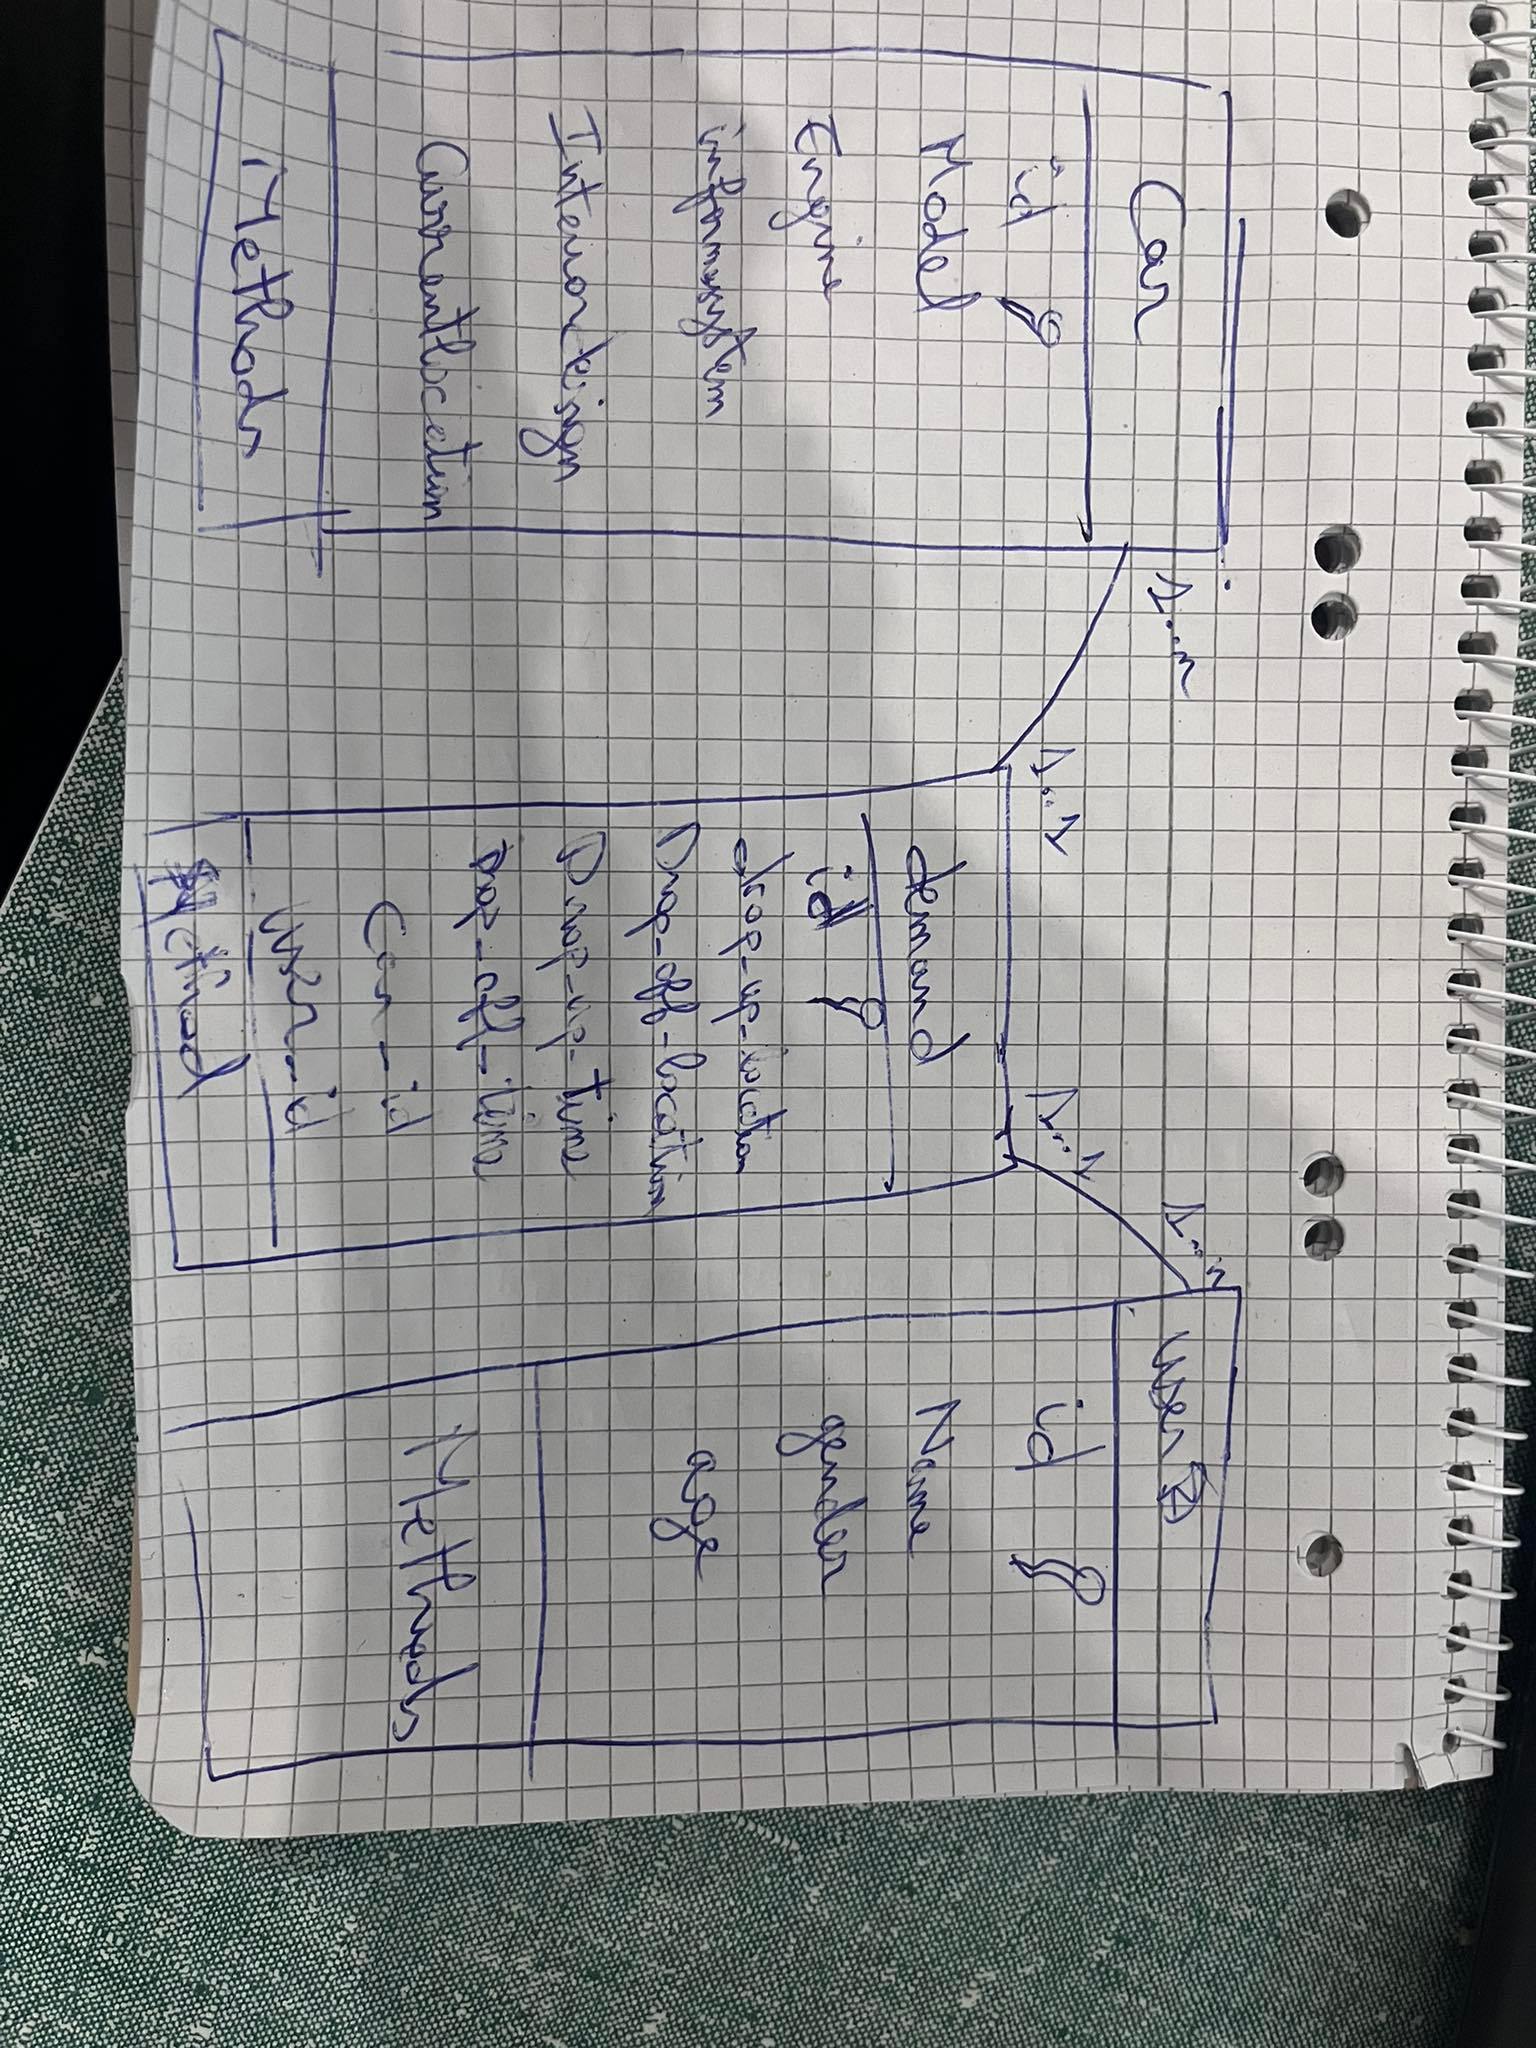 Car
id
Model
Engine
infomosystem
Interiordesign
Currentlocation
Methods
1...n
1..1
demand
id
drop_up_location
Drop_off_location
Drop_up_time
Drop_off_time
Car_id
user_id
Method
1...n
1...1
user
id
Name
gender
age
Methods